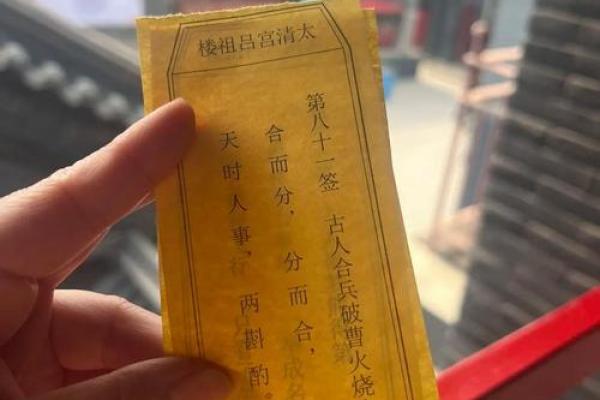 太清宫吕祖楼
第八十一签 古人合兵破曹火烧
合而分，分而合，
天时人事，两斟酌。